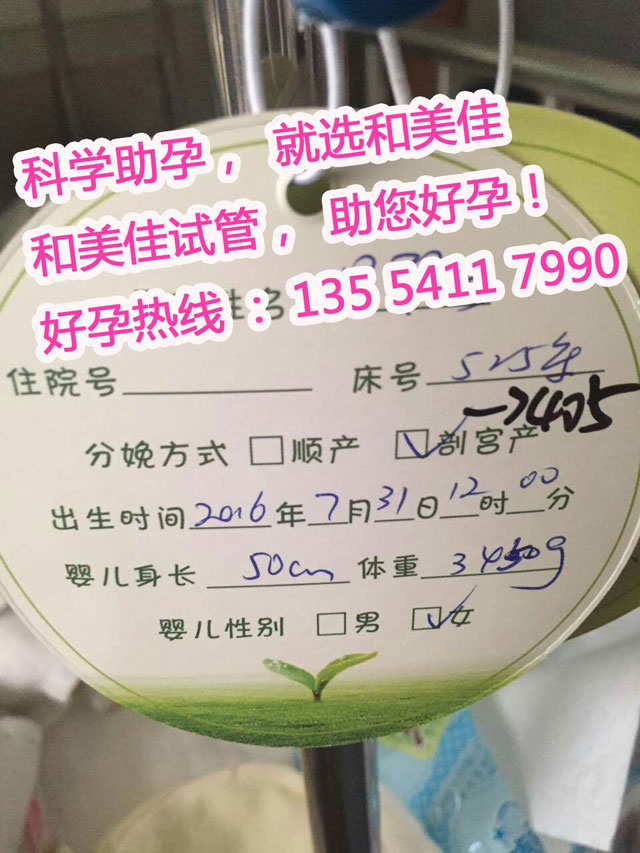 科学助孕， 就选和美佳
和美佳试管， 助您好孕！
好孕热线 ：135 5411 7990
姓名
住院号 床号 525
→405
分娩方式 □ 顺产 ☑ 剖宫产
出生时间 2016 年 7 月 31 日 12 时 00 分
婴儿身长 50cm 体重 3450g
婴儿性别 □ 男 ☑ 女